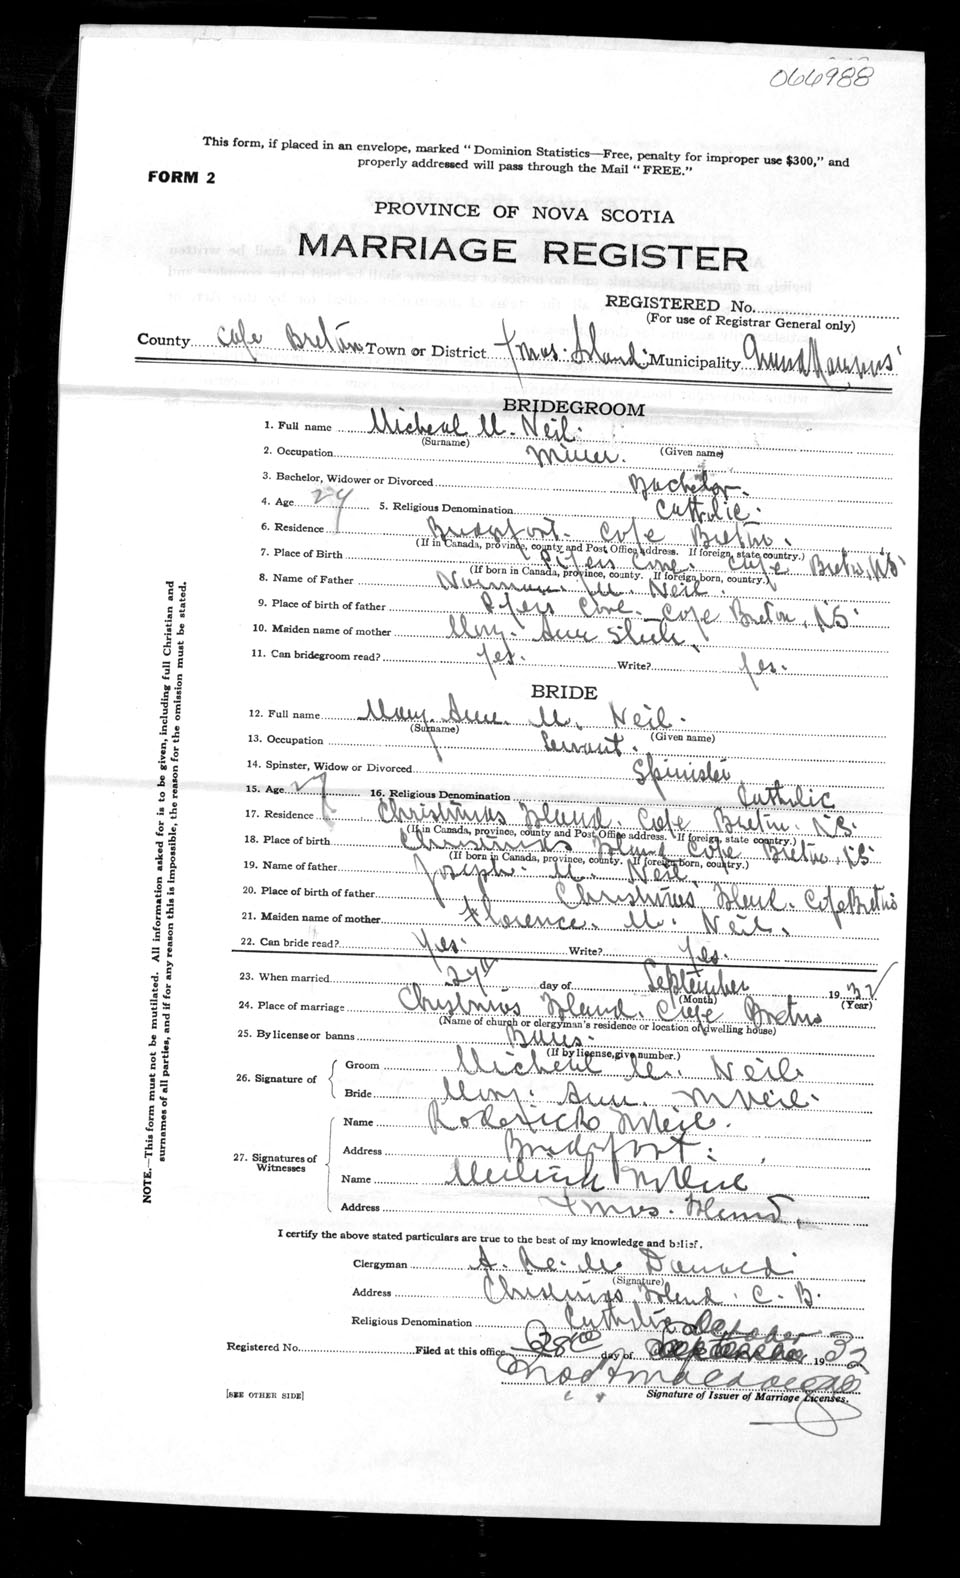 066988
This form, if placed in an envelope, marked "Dominion Statistics—Free, penalty for improper use $300," and
properly addressed will pass through the Mail "FREE."
FORM 2
PROVINCE OF NOVA SCOTIA
MARRIAGE REGISTER
REGISTERED No.
(For use of Registrar General only)
County Cape Breton Town or District Xmas Island Municipality
BRIDEGROOM
1. Full name Micheal Mc Neil
(Surname) (Given name)
2. Occupation Miner.
3. Bachelor, Widower or Divorced Bachelor.
4. Age 29 5. Religious Denomination Catholic.
6. Residence Cape Breton.
(If in Canada, province, county and Post Office address. If foreign, state country.)
7. Place of Birth Pipers Cove. Cape Breton, N.S.
(If born in Canada, province, county. If foreign born, country.)
8. Name of Father Norman Mc Neil.
9. Place of birth of father Pipers Cove. Cape Breton, N.S.
10. Maiden name of mother Mary Ann
11. Can bridegroom read? Yes. Write? Yes.
BRIDE
12. Full name Mary Ann Mc Neil.
(Surname) (Given name)
13. Occupation Servant.
14. Spinster, Widow or Divorced Spinister
15. Age 16. Religious Denomination Catholic
17. Residence Christmas Island. Cape Breton. N.S.
(If in Canada, province, county and Post Office address. If foreign, state country.)
18. Place of birth Christmas Island Cape Breton, N.S.
(If born in Canada, province, county. If foreign born, country.)
19. Name of father Joseph Mc Neil
20. Place of birth of father Christmas Island. Cape Breton
21. Maiden name of mother Florence Mc Neil.
22. Can bride read? Yes. Write? Yes.
23. When married 27th day of September 1932
(Month) (Year)
24. Place of marriage Christmas Island. Cape Breton
(Name of church or clergyman's residence or location of dwelling house)
25. By license or banns Banns.
(If by license, give number.)
26. Signature of
Groom Micheal Mc Neil
Bride Mary Ann McNeil.
27. Signatures of Witnesses
Name Roderick McNeil.
Address
Name McNeil
Address Xmas Island.
I certify the above stated particulars are true to the best of my knowledge and belief.
Clergyman Mc Donald
(Signature)
Address Christmas Island. C. B.
Religious Denomination Catholic
October
Registered No. Filed at this office 28th day of September 1932
Signature of Issuer of Marriage Licenses.
[SEE OTHER SIDE]
NOTE.—This form must not be mutilated. All information asked for is to be given, including full Christian and
surnames of all parties, and if for any reason this is impossible, the reason for the omission must be stated.